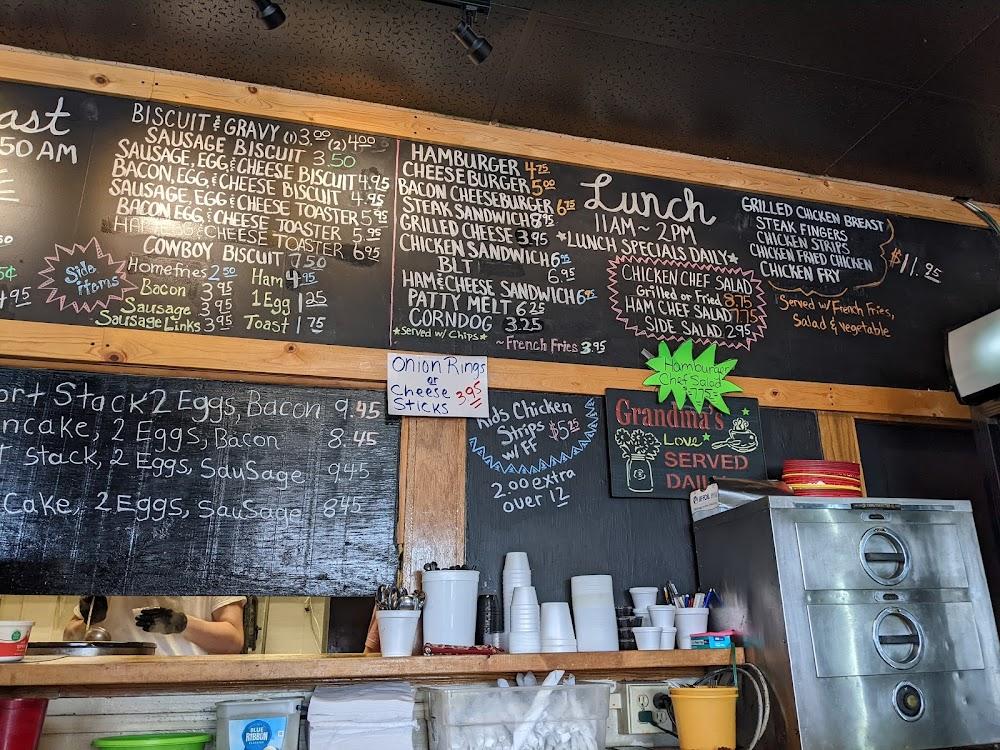 ast
50 AM
BISCUIT & GRAVY (1) 3.00 (2) 4.00
SAUSAGE BISCUIT 3.50
SAUSAGE, EGG, & CHEESE BISCUIT 4.95
BACON, EGG, & CHEESE BISCUIT 4.95
SAUSAGE, EGG, & CHEESE TOASTER 5.95
BACON EGG & CHEESE TOASTER 5.95
HAM EGG & CHEESE TOASTER 6.95
COWBOY BISCUIT 7.50
Side items
Homefries 2.50
Bacon 3.95
Sausage 3.95
Sausage Links 3.95
Ham 4.95
1 Egg 1.25
Toast 1.75
4.95
HAMBURGER 4.75
CHEESEBURGER 5.00
BACON CHEESEBURGER 6.75
STEAK SANDWICH 8.95
GRILLED CHEESE 3.95
CHICKEN SANDWICH 6.95
BLT 6.95
HAM & CHEESE SANDWICH 6.95
PATTY MELT 6.25
CORNDOG 3.25
*Served w/ Chips*
~French Fries 3.95
Lunch
11AM~2PM
*LUNCH SPECIALS DAILY*
CHICKEN CHEF SALAD
Grilled or Fried 8.75
HAM CHEF SALAD 7.75
SIDE SALAD 2.95
GRILLED CHICKEN BREAST
STEAK FINGERS
CHICKEN STRIPS
CHICKEN FRIED CHICKEN
CHICKEN FRY
$11.95
Served w/ French Fries,
Salad & Vegetable
Hamburger
Chef Salad
Onion Rings
or
Cheese
Sticks 3.95
ort Stack 2 Eggs, Bacon 9.45
ncake, 2 Eggs, Bacon 8.45
t Stack, 2 Eggs, Sausage 9.45
Cake, 2 Eggs, Sausage 8.45
Kids Chicken
Strips
w/ FF
$5.25
2.00 extra
over 12
Grandma's
Love
SERVED
DAIL
BLUE
RIBBON